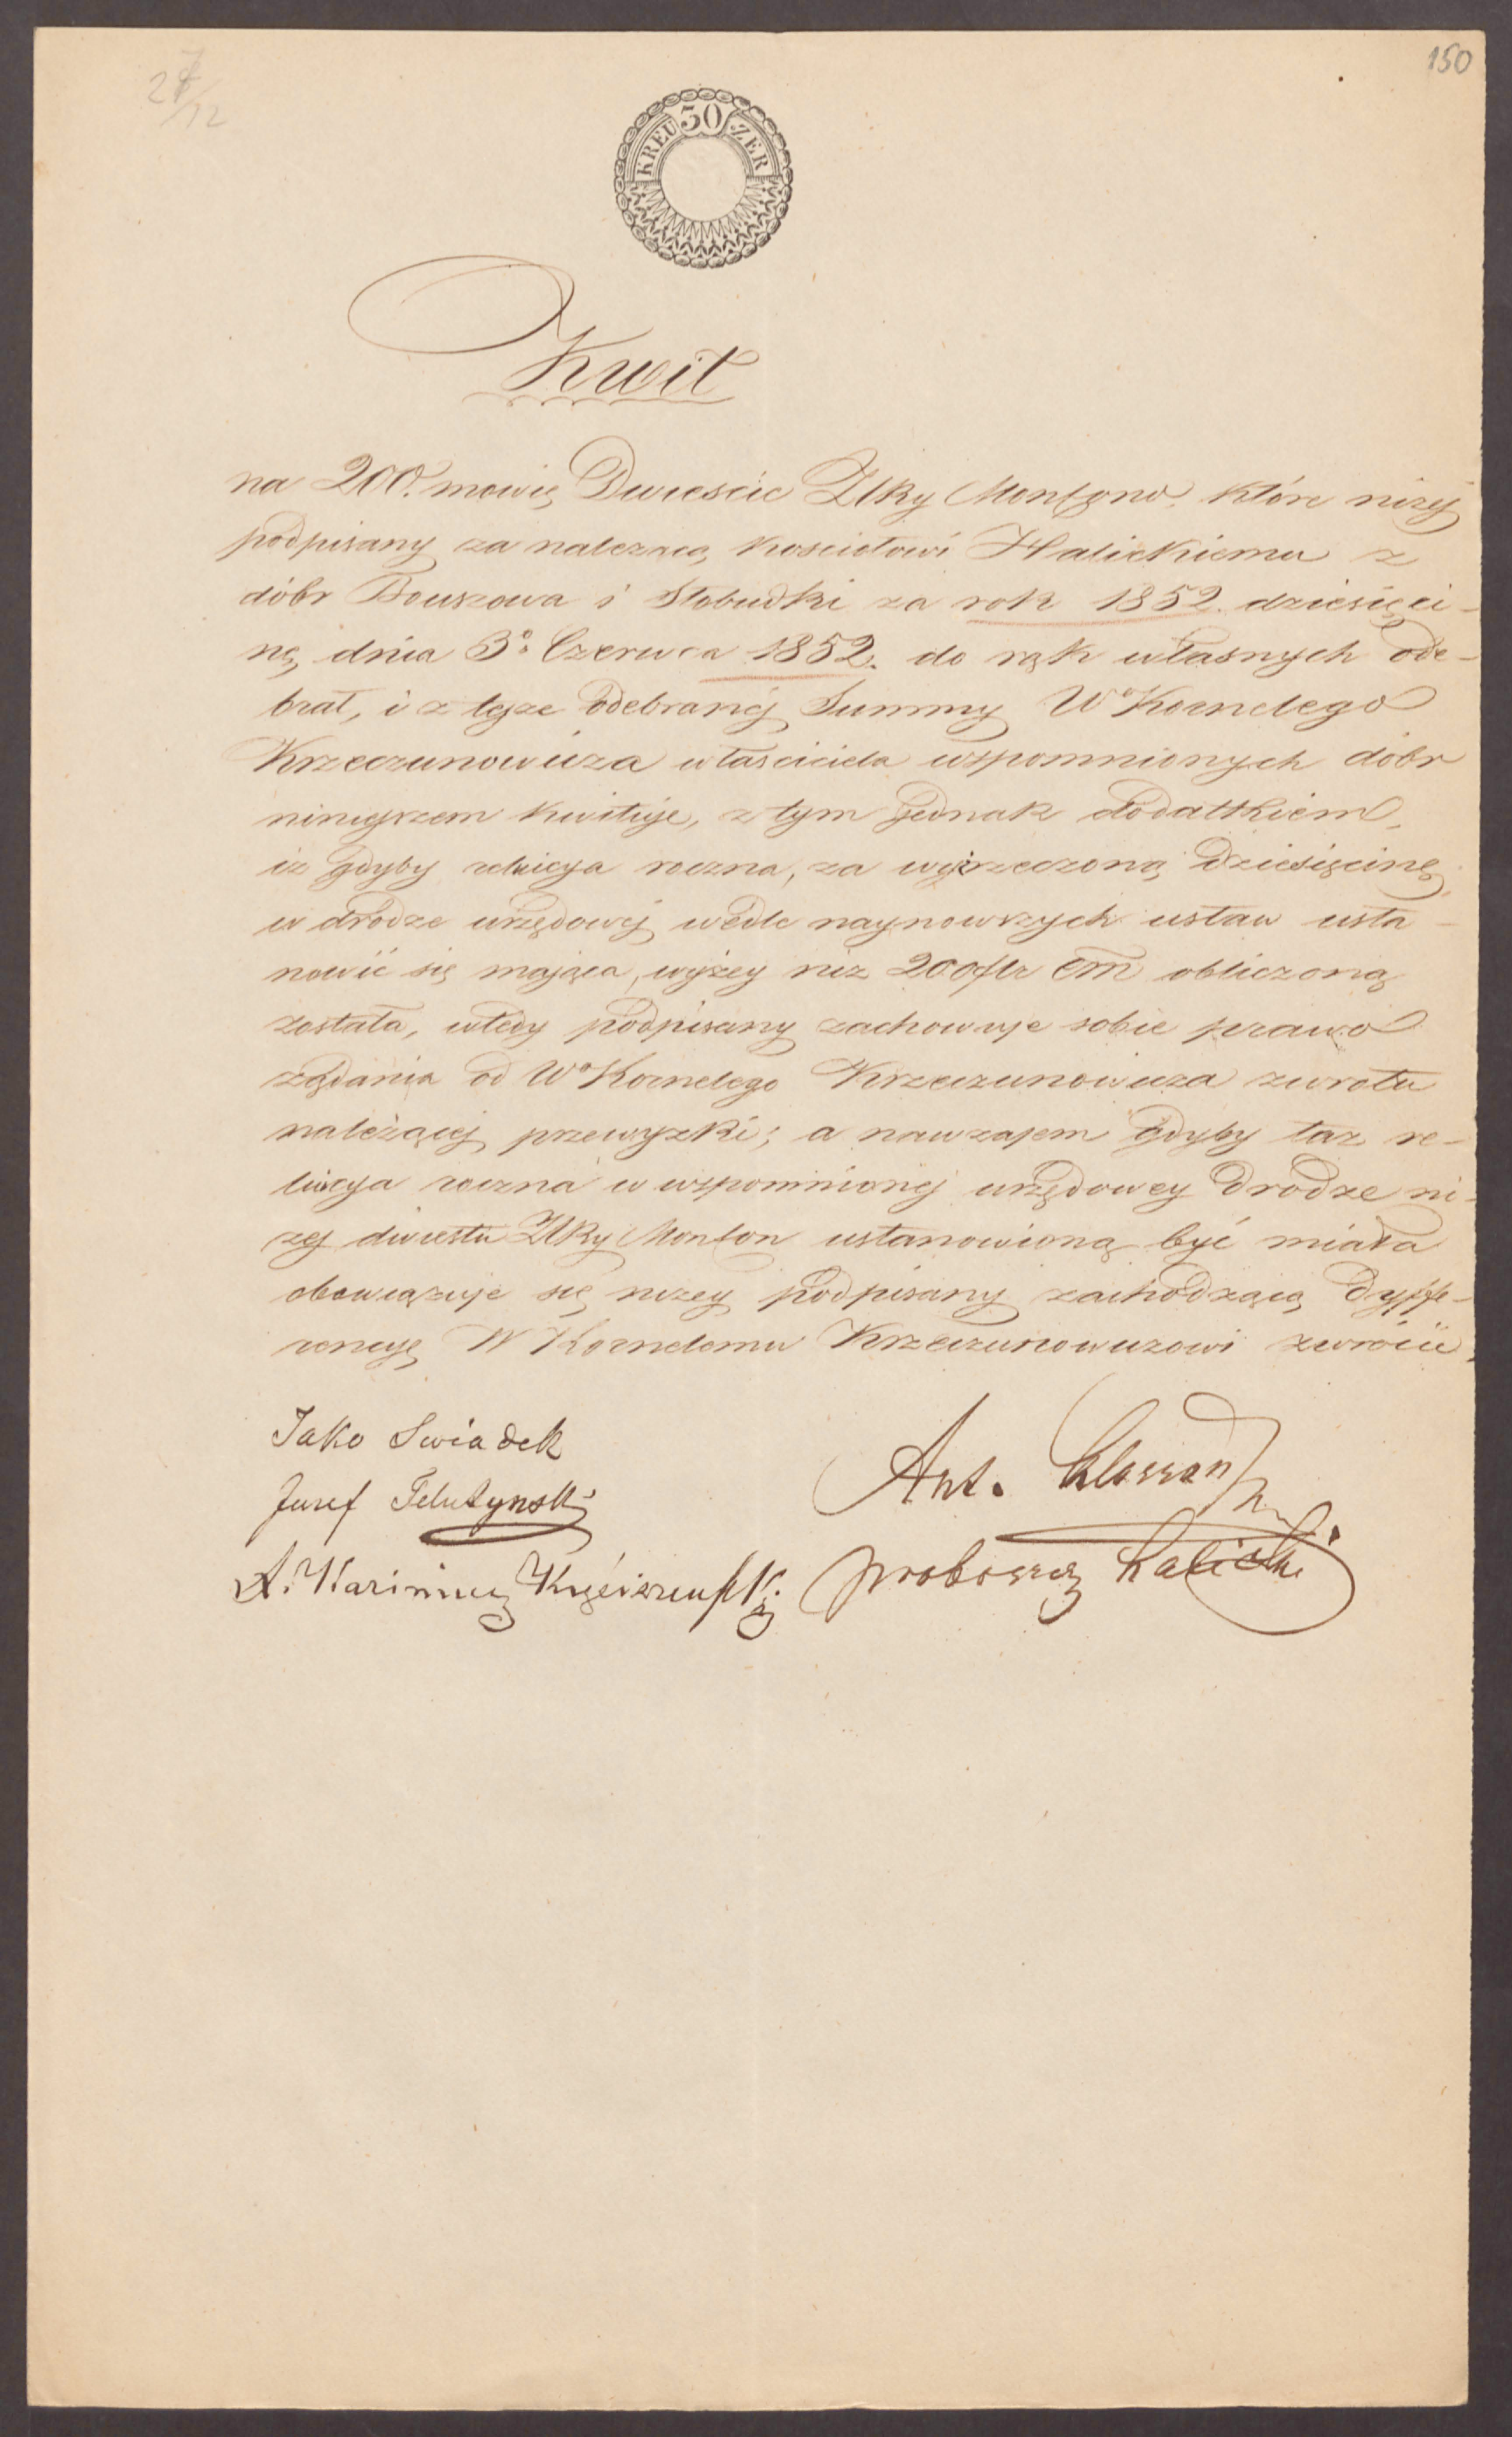 150
27/12
30
KREUZER
Kwit
na 200. mowię Dwieście ZłRy Mon konw. które niżej
podpisany za należącą kosciołowi Halickiemu z
dóbr Bouszowa i Słobudki za rok 1852. dziesięci-
nę, dnia 3º Czerwca 1852. do rąk własnych ode-
brał, i z tejże odebranej Summy Wº Kornelego
Krzeczunowicza właściciela wspomnionych dóbr
niniejszem kwituje, z tym jednak dodatkiem,
iż gdyby relucya roczna, za wyżrzeczoną dziesięcinę,
w drodze urzędowej wedle naynowszych ustaw usta-
nowić się mająca, wyżey niż 200 flr CM obliczoną
została, wtedy podpisany zachowuje sobie prawo
żądania od Wº Kornelego Krzeczunowicza zwrotu
należącej przewyżki; a nawzajem gdyby taż re-
lucya roczna w wspomnionej urzędowey drodze ni-
żej dwiestu ZłRy Mon kon ustanowioną być miała
obowiązuje się niżey podpisany zachodzącą dyffe-
rencyę W Kornelemu Krzeczunowiczowi zwrócić.
Jako Swiadek
Ant.
Jozef
proboszcz halicki
X.